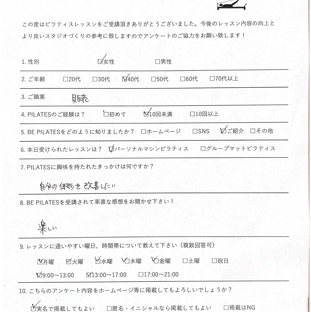 この度はピラティスレッスンをご受講頂きありがとうございました。今後のレッスン内容の向上と
より良いスタジオづくりの参考に致しますのでアンケートのご協力をお願い致します！
1. 性別 ☑女性 □男性
2. ご年齢 □20代 □30代 ☑40代 □50代 □60代 □70代以上
3. ご職業
4. PILATESのご経験は？ □初めて ☑10回未満 □10回以上
5. BE PILATESをどのように知りましたか？ □ホームページ □SNS ☑ご紹介 □その他
6. 本日受けられたレッスンは？ ☑パーソナルマシンピラティス □グループマットピラティス
7. PILATESに興味を持たれたきっかけは何ですか？
自分の体形を改善したい
8. BE PILATESを受講されて率直な感想をお聞かせ下さい！
楽しい
9. レッスンに通いやすい曜日、時間帯について教えて下さい（複数回答可）
☑月曜 ☑火曜 ☑水曜 ☑木曜 ☑金曜 □土曜 □祝日
☑9:00~13:00 ☑13:00~17:00 □17:00~21:00
10. こちらのアンケート内容をホームページ等に掲載してもよろしいでしょうか？
☑実名で掲載してもよい □匿名・イニシャルなら掲載してもよい □掲載はNG